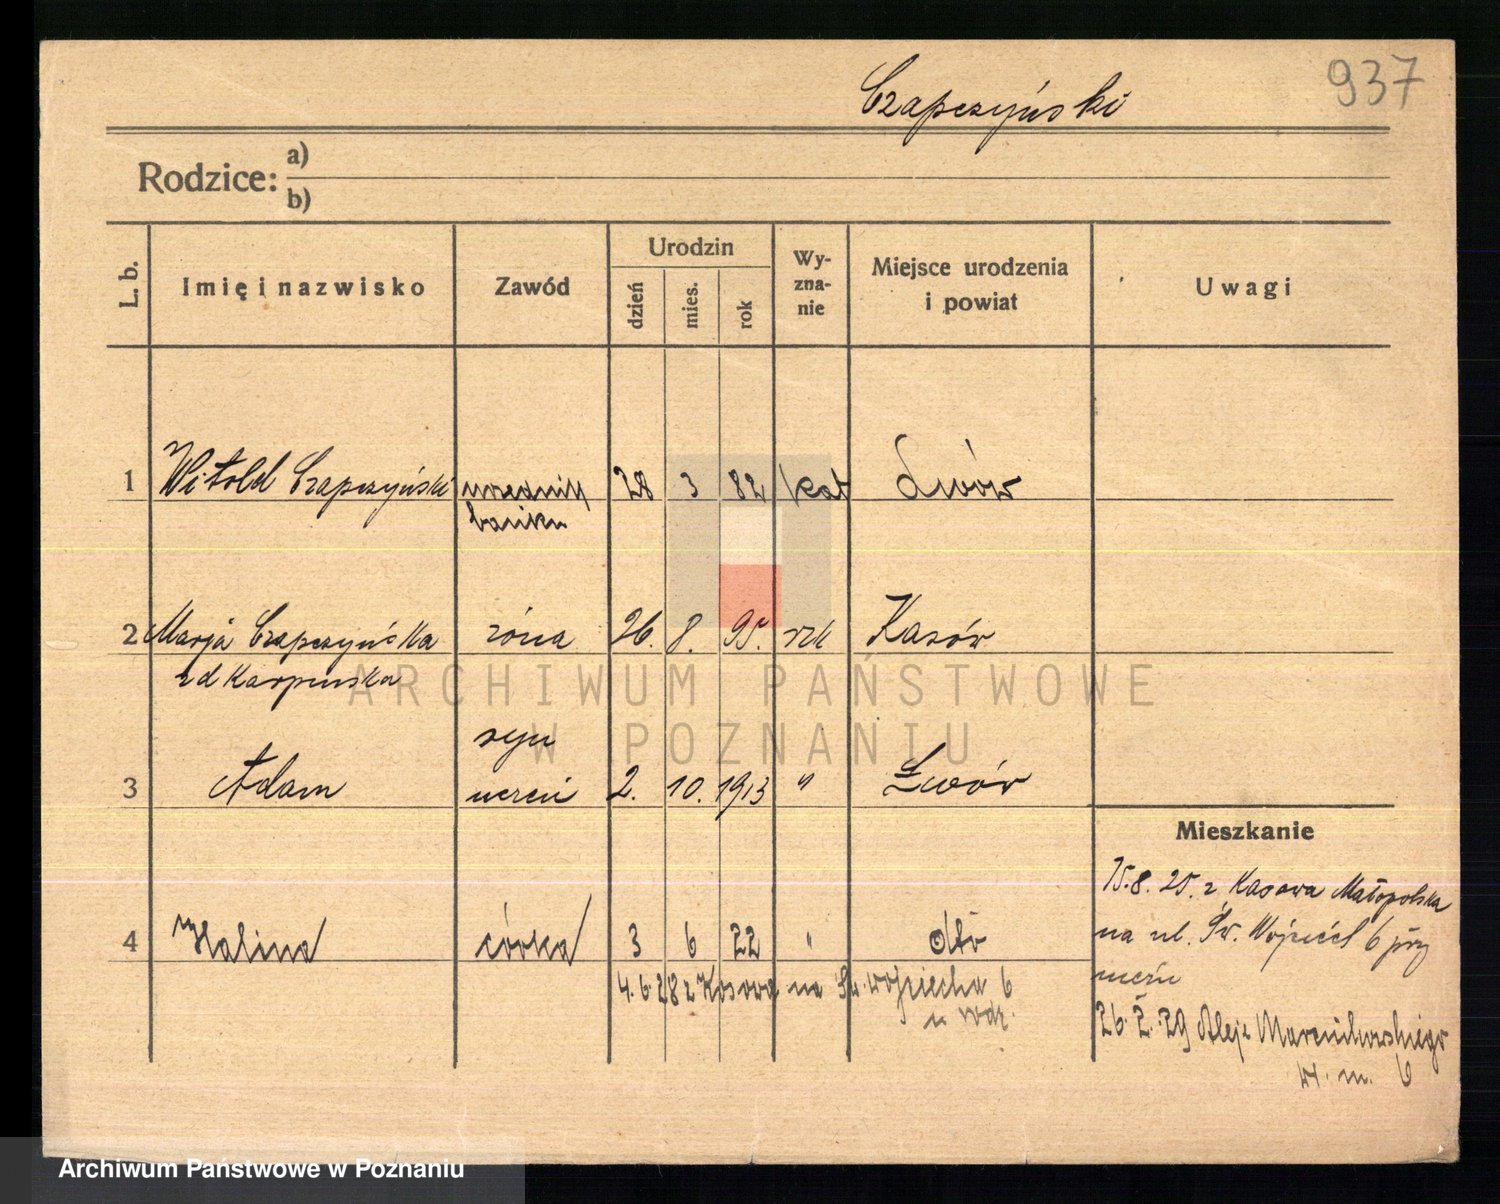 Czapczyński
937
Rodzice:
a)
b)
L. b.
Imię i nazwisko
Zawód
Urodzin
dzień
mies.
rok
Wy-
zna-
nie
Miejsce urodzenia
i powiat
Uwagi
1 Witold Czapczyński urzędnik 28 3 82 kat Lwów
banku
2 Marja Czapczyńska żona 26. 8. 95. rzk Kasów
zd Karpińska
ARCHIWUM PAŃSTWOWE
W POZNANIU
syn
3 Adam uczeń 2. 10. 1913 " Lwów
Mieszkanie
15.8.25. z Kasowa Małopolska
na ul. Św. Wojciech 6 przy
4 Halina córka 3 6 22 "
4.6.28 z Kosowa na Św. Wojciecha 6
26.2.29 Aleje Marcinkowskiego
m. 6
Archiwum Państwowe w Poznaniu